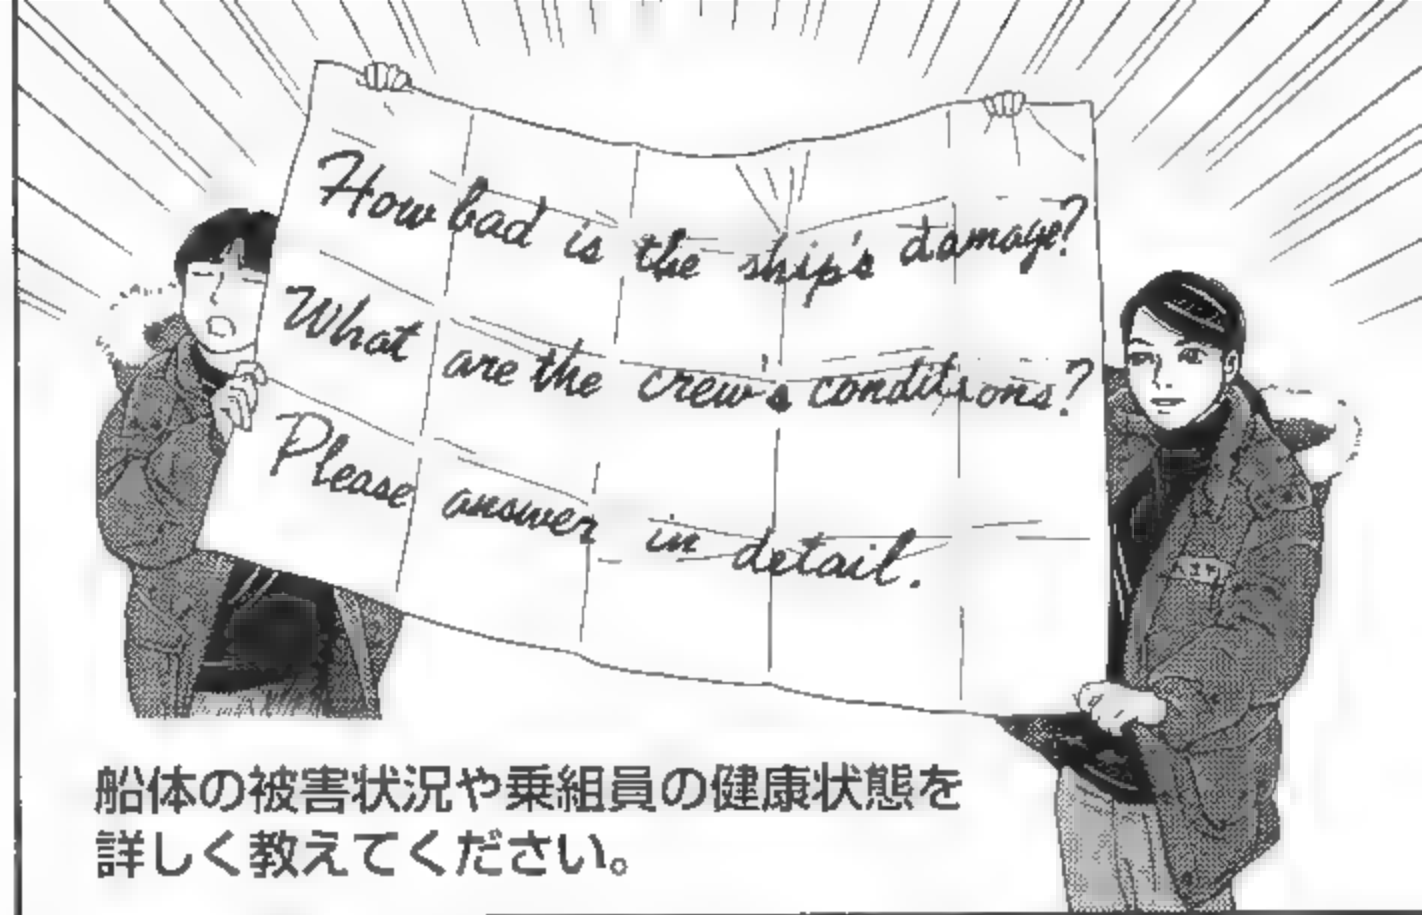 How bad is the ship's damage?
What are the crew's conditions?
Please answer in detail.
船体の被害状況や乗組員の健康状態を
詳しく教えてください。